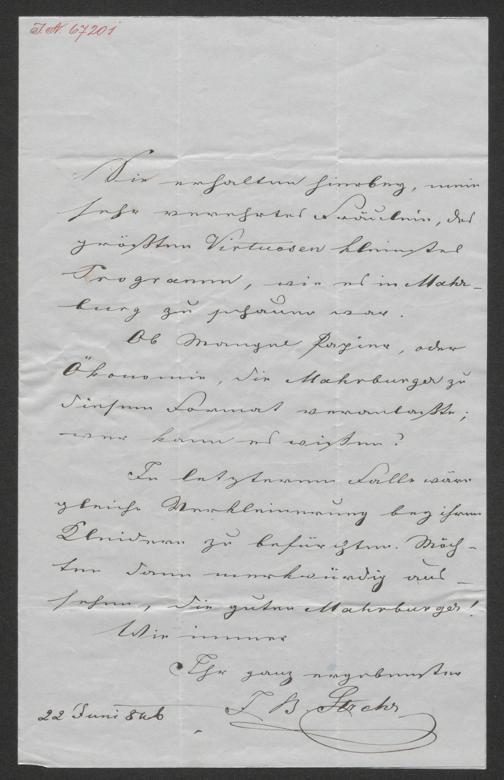 I.N. 67201
Sie erhalten hierbey, mein
sehr verehrtes Fräulein, des
größten Virtuosen kleinstes
Programm, wie es in Mahr-
burg zu schauen war.
Ob Mangel Papier, oder
Ökonomie, die Mahrburger zu
diesem Format veranlaßte;
wer kann es wißen?
Im letzteren Falle wäre
gleiche Verkleinerung bey ihren
Kleidern zu befürchten. Möch-
ten dann merkwürdig aus-
sehen, die guten Mahrburger!
Wie immer
Ihr ganz ergebenster
22 Juni 846